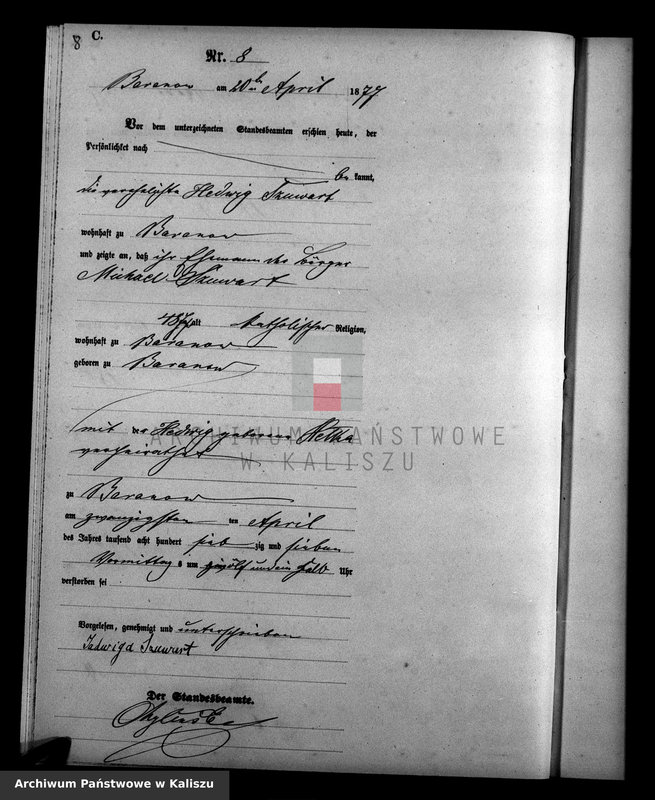 8
C.
Nr. 8
Baranow am 20ten April 1877
Vor dem unterzeichneten Standesbeamten erschien heute, der
Persönlichkeit nach
be kannt,
die verehelichte Hedwig Szuwart
wohnhaft zu Baranow
und zeigte an, daß ihr Ehemann der Bürger
Michael Szuwart
48 J alt katholischer Religion,
wohnhaft zu Baranow
geboren zu Baranow
mit der Hedwig geborene
verheirathet
zu Baranow
am zwanzigsten ten April
des Jahres tausend acht hundert sieb zig und sieben
Vormittag s um zwölf und ein halb Uhr
verstorben sei
Vorgelesen, genehmigt und unterschrieben
Jadwiga Szuwart
Der Standesbeamte.
ARCHIWUM PAŃSTWOWE
W KALISZU
Archiwum Państwowe w Kaliszu